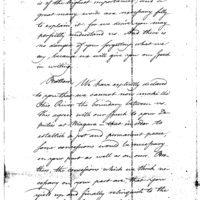 is of the highest importance, and a
great many words are necessary fully
to explain it; for we desire you may
perfectly understand us. And there is
no danger of your forgetting what we
say because we will give you our Speech
in writing.
Brothers, We have explicitly declared
to you that we cannot now make the
Ohio River the boundary between us.
This agrees with our speech to your De
puties at Niagara, that in order to
establish a just and permanent peace,
some concessions would be necessary
on your part as well as on ours. Bro
thers, the concessions which we think ne
cessary on your part are, that you
yield up and finally relinquish to the